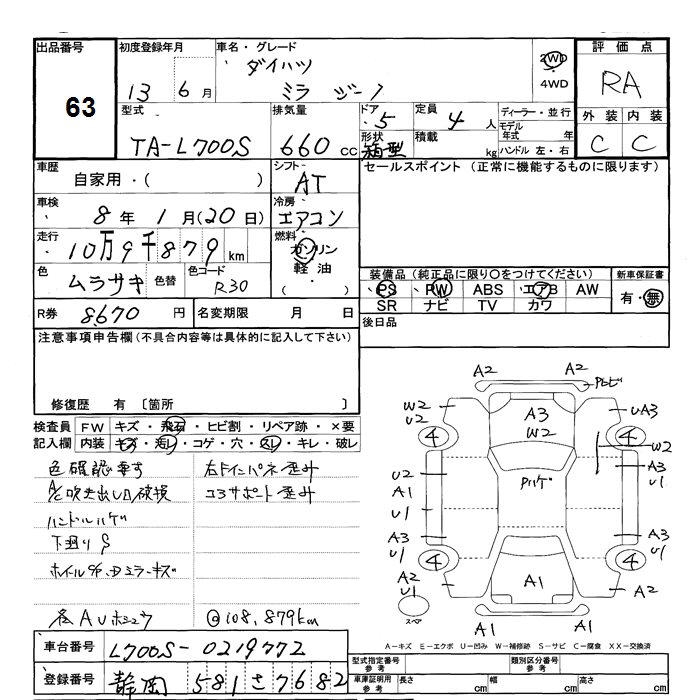 出品番号 初度登録年月 車名・グレード 評価点
63
13 6月 ダイハツ ミラ ジーノ 2WD 4WD RA
型式 排気量 ドア 定員 ディーラー・並行 外装 内装
TA-L700S 660 cc 5 4人 モデル年式 年 C C
形状 箱型 積載 kg ハンドル 左・右
車歴 シフト セールスポイント (正常に機能するものに限ります)
自家用・( ) AT
車検 冷房
8年 1月(20日) エアコン
走行 燃料
10万9千879km ガソリン
色 色替 色コード 軽油
ムラサキ R30 ( )
装備品 (純正品に限り〇をつけてください) 新車保証書
PS PW ABS エアB AW 有・無
SR ナビ TV カワ
R券 8670円 名変期限 月 日 後日品
注意事項申告欄(不具合内容等は具体的に記入して下さい)
修復歴 有 〔箇所 〕
検査員 FW キズ・飛石・ヒビ割・リペア跡・×要
記入欄 内装 キズ・汚レ・コゲ・穴・スレ・キレ・破レ
色確認要す 左ドインパネ歪み
A/C吹き出し口破損 コアサポート歪み
ハンドルハゲ
下廻りS
ホイルキズ・Dミラーキズ
@108,879km
A2 A2
A3
W2
W2 U2
UA3
4 4
W2
A3
U1
U2
A1
U1
Pハゲ
A3
U1
A3
U1
4 4
A2
U1
A1
A2
スペア
A1 A1
A-キズ E-エクボ U-凹み W-補修跡 S-サビ C-腐食 XX-交換済
車台番号 L700S-0219772
型式指定番号 参考 類別区分番号 参考
登録番号 静岡 581さ7682
車庫証明用 参考 長さ cm 幅 cm 高さ cm